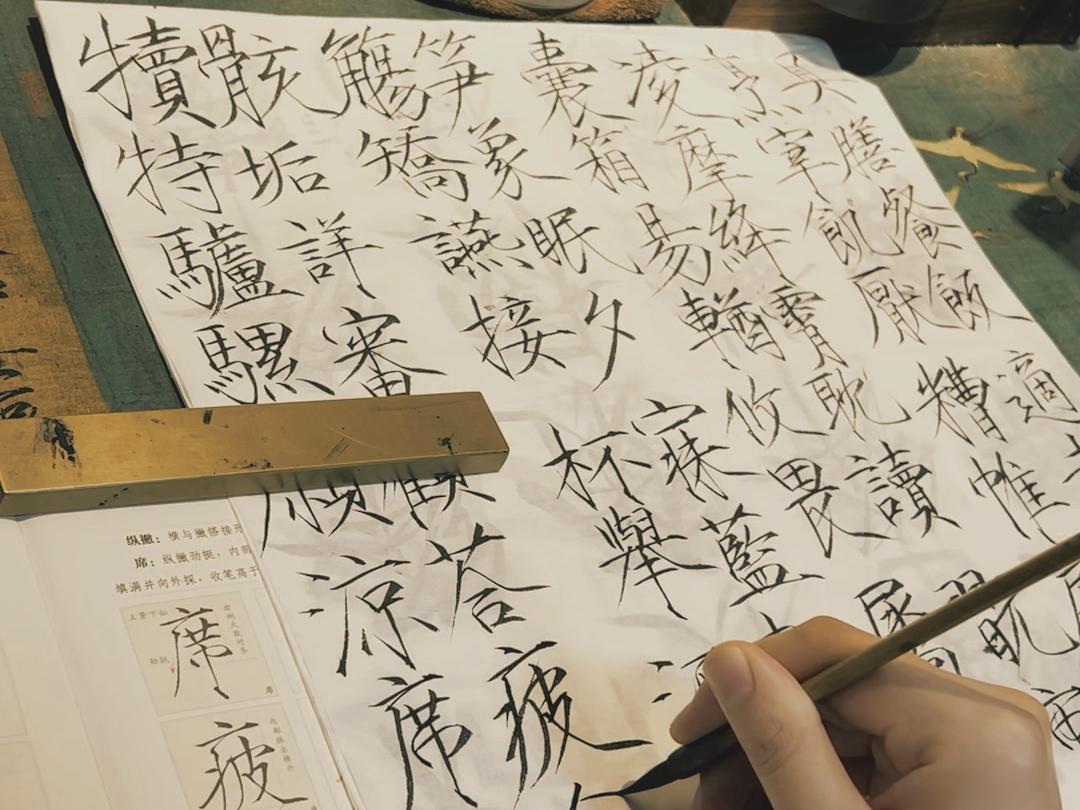 具膳餐飯適
烹宰飢厭糟帷
凌摩絳霄耽讀
囊箱易輶攸畏
笋象眠夕寐藍
觴矯讌接杯舉
骸垢詳審顧答疲
犢特驢騾涼席
纵撇：横与撇搭接
席：纵撇劲挺，内
填满并向外探，收笔高于
席
疲